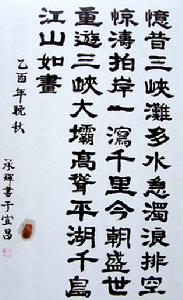 憶昔三峽灘多水急濁浪排空
惊濤拍岸一瀉千里今朝盛世
重遊三峽大壩高聳平湖千島
江山如畫
乙酉年晚秋
承輝書于宜昌